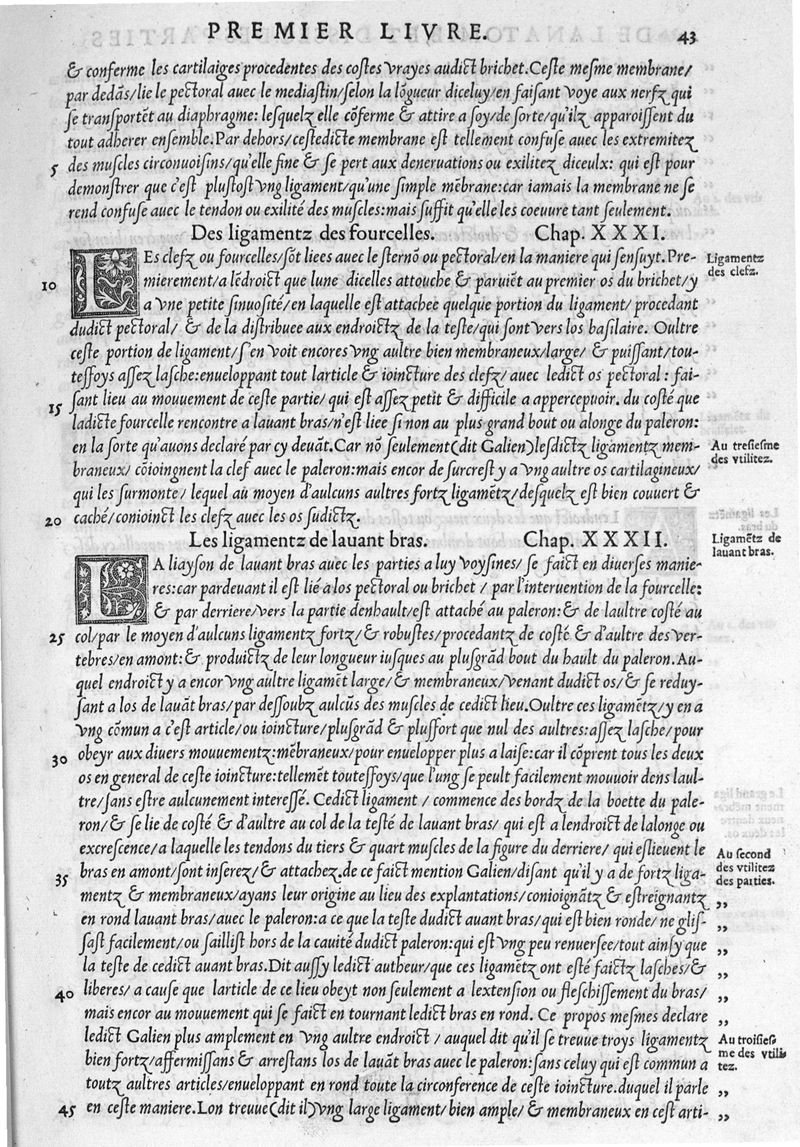 PREMIER LIVRE. 43
& conferme les cartilaiges procedentes des costes vrayes audict brichet. Ceste mesme membrane/
par dedãs/lie le pectoral auec le mediastin/selon la lõgueur diceluy/en faisant voye aux nerfz qui
se transportẽt au diaphragme: lesquelz elle cõferme & attire a soy/de sorte/qu'ilz apparoissent du
tout adherer ensemble. Par dehors/cestedicte membrane est tellement confuse auec les extremitez
5 des muscles circonuoisins/qu'elle fine & se pert aux deneruations ou exilitez diceulx: qui est pour
demonstrer que c'est plustost vng ligament/qu'une simple mẽbrane: car iamais la membrane ne se
rend confuse auec le tendon ou exilité des muscles: mais suffit qu'elle les coeuure tant seulement.
Des ligamentz des fourcelles. Chap. XXXI.
LEs clefz ou fourcelles/sõt liees auec le sternõ ou pectoral/en la maniere qui sensuyt. Pre-
Ligamentz
des clefz.
10 mierement/a lẽdroict que lune dicelles attouche & paruiẽt au premier os du brichet/y
a vne petite sinuosité/en laquelle est attachee quelque portion du ligament/procedant
dudict pectoral/ & de la distribuee aux endroictz de la teste/qui sont vers los basilaire. Oultre
ceste portion de ligament/s'en voit encores vng aultre bien membraneux/large/ & puissant/tou-
tesfoys assez lasche: enueloppant tout larticle & ioincture des clefz/ auec ledict os pectoral: fai-
15 sant lieu au mouuement de ceste partie/ qui est assez petit & difficile a appercepuoir. du costé que
ladicte fourcelle rencontre a lauant bras/n'est liee si non au plus grand bout ou alonge du paleron:
en la sorte qu'auons declaré par cy deuãt. Car nõ seulement (dit Galien) lesdictz ligamentz mem-
Au tresiesme
des vtilitez.
braneux/ cõioingnent la clef auec le paleron: mais encor de surcrest y a vng aultre os cartilagineux/
qui les surmonte/ lequel au moyen d'aulcuns aultres fortz ligamẽtz/desquelz est bien couuert &
20 caché/conioinct les clefz auec les os susdictz.
Les ligamentz de lauant bras. Chap. XXXII.
Ligamẽtz de
lauant bras.
LA liayson de lauant bras auec les parties a luy voysines/ se faict en diuerses manie-
res: car pardeuant il est lié a los pectoral ou brichet / par l'interuention de la fourcelle:
& par derriere/vers la partie denhault/est attaché au paleron: & de laultre costé au
25 col/par le moyen d'aulcuns ligamentz fortz/ & robustes/procedantz de costé & d'aultre des ver-
tebres/en amont: & produictz de leur longueur iusques au plusgrãd bout du hault du paleron. Au-
quel endroict y a encor vng aultre ligamẽt large/ & membraneux/venant dudict os/ & se reduy-
sant a los de lauãt bras/par dessoubz aulcũs des muscles de cedict lieu. Oultre ces ligamẽtz/y en a
vng cõmun a c'est article/ou ioincture/plusgrãd & plusfort que nul des aultres: assez lasche/pour
30 obeyr aux diuers mouuementz: mẽbraneux/pour enuelopper plus a laise: car il cõprent tous les deux
os en general de ceste ioincture: tellemẽt toutesfoys/que l'ung se peult facilement mouuoir dens laul-
tre/sans estre aulcunement interessé. Cedict ligament / commence des bordz de la boette du pale-
ron/ & se lie de costé & d'aultre au col de la testé de lauant bras/ qui est a lendroict de lalonge ou
excrescence/a laquelle les tendons du tiers & quart muscles de la figure du derriere/ qui eslieuent le
35 bras en amont/sont inserez/ & attachez. de ce faict mention Galien/disant qu'il y a de fortz liga-
Au second
des vtilitez
des parties.
mentz & membraneux/ayans leur origine au lieu des explantations/conioignãtz & estreignantz ,,
en rond lauant bras/auec le paleron: a ce que la teste dudict auant bras/qui est bien ronde/ ne glis- ,,
sast facilement/ou saillist hors de la cauité dudict paleron: qui est vng peu renuersee/tout ainsy que ,,
la teste de cedict auant bras. Dit aussy ledict autheur/que ces ligamẽtz ont esté faictz lasches/ & ,,
40 liberes/ a cause que larticle de ce lieu obeyt non seulement a lextension ou fleschissement du bras/ ,,
mais encor au mouuement qui se faict en tournant ledict bras en rond. Ce propos mesmes declare ,,
ledict Galien plus amplement en vng aultre endroict / auquel dit qu'il se treuue troys ligamentz
Au troisies
me des vtili
tez.
bien fortz/affermissans & arrestans los de lauãt bras auec le paleron: sans celuy qui est commun a
toutz aultres articles/enueloppant en rond toute la circonference de ceste ioincture. duquel il parle ,,
45 en ceste maniere. Lon treuue (dit il) vng large ligament/ bien ample/ & membraneux en cest arti- ,,